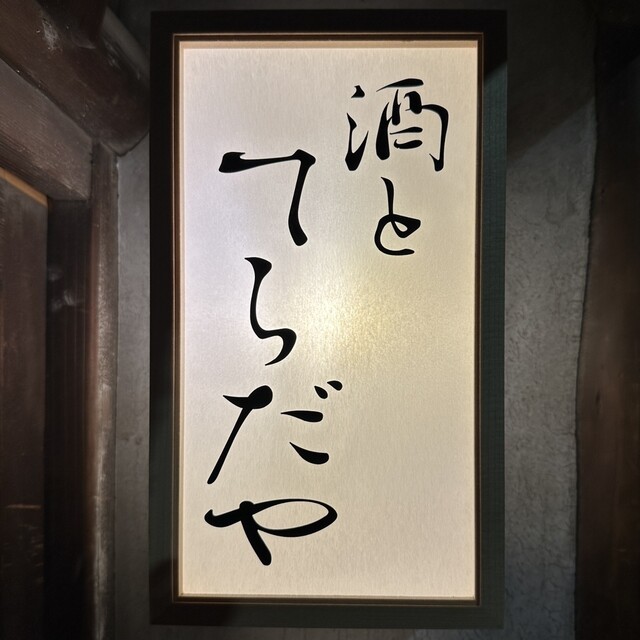 酒と
てらだや